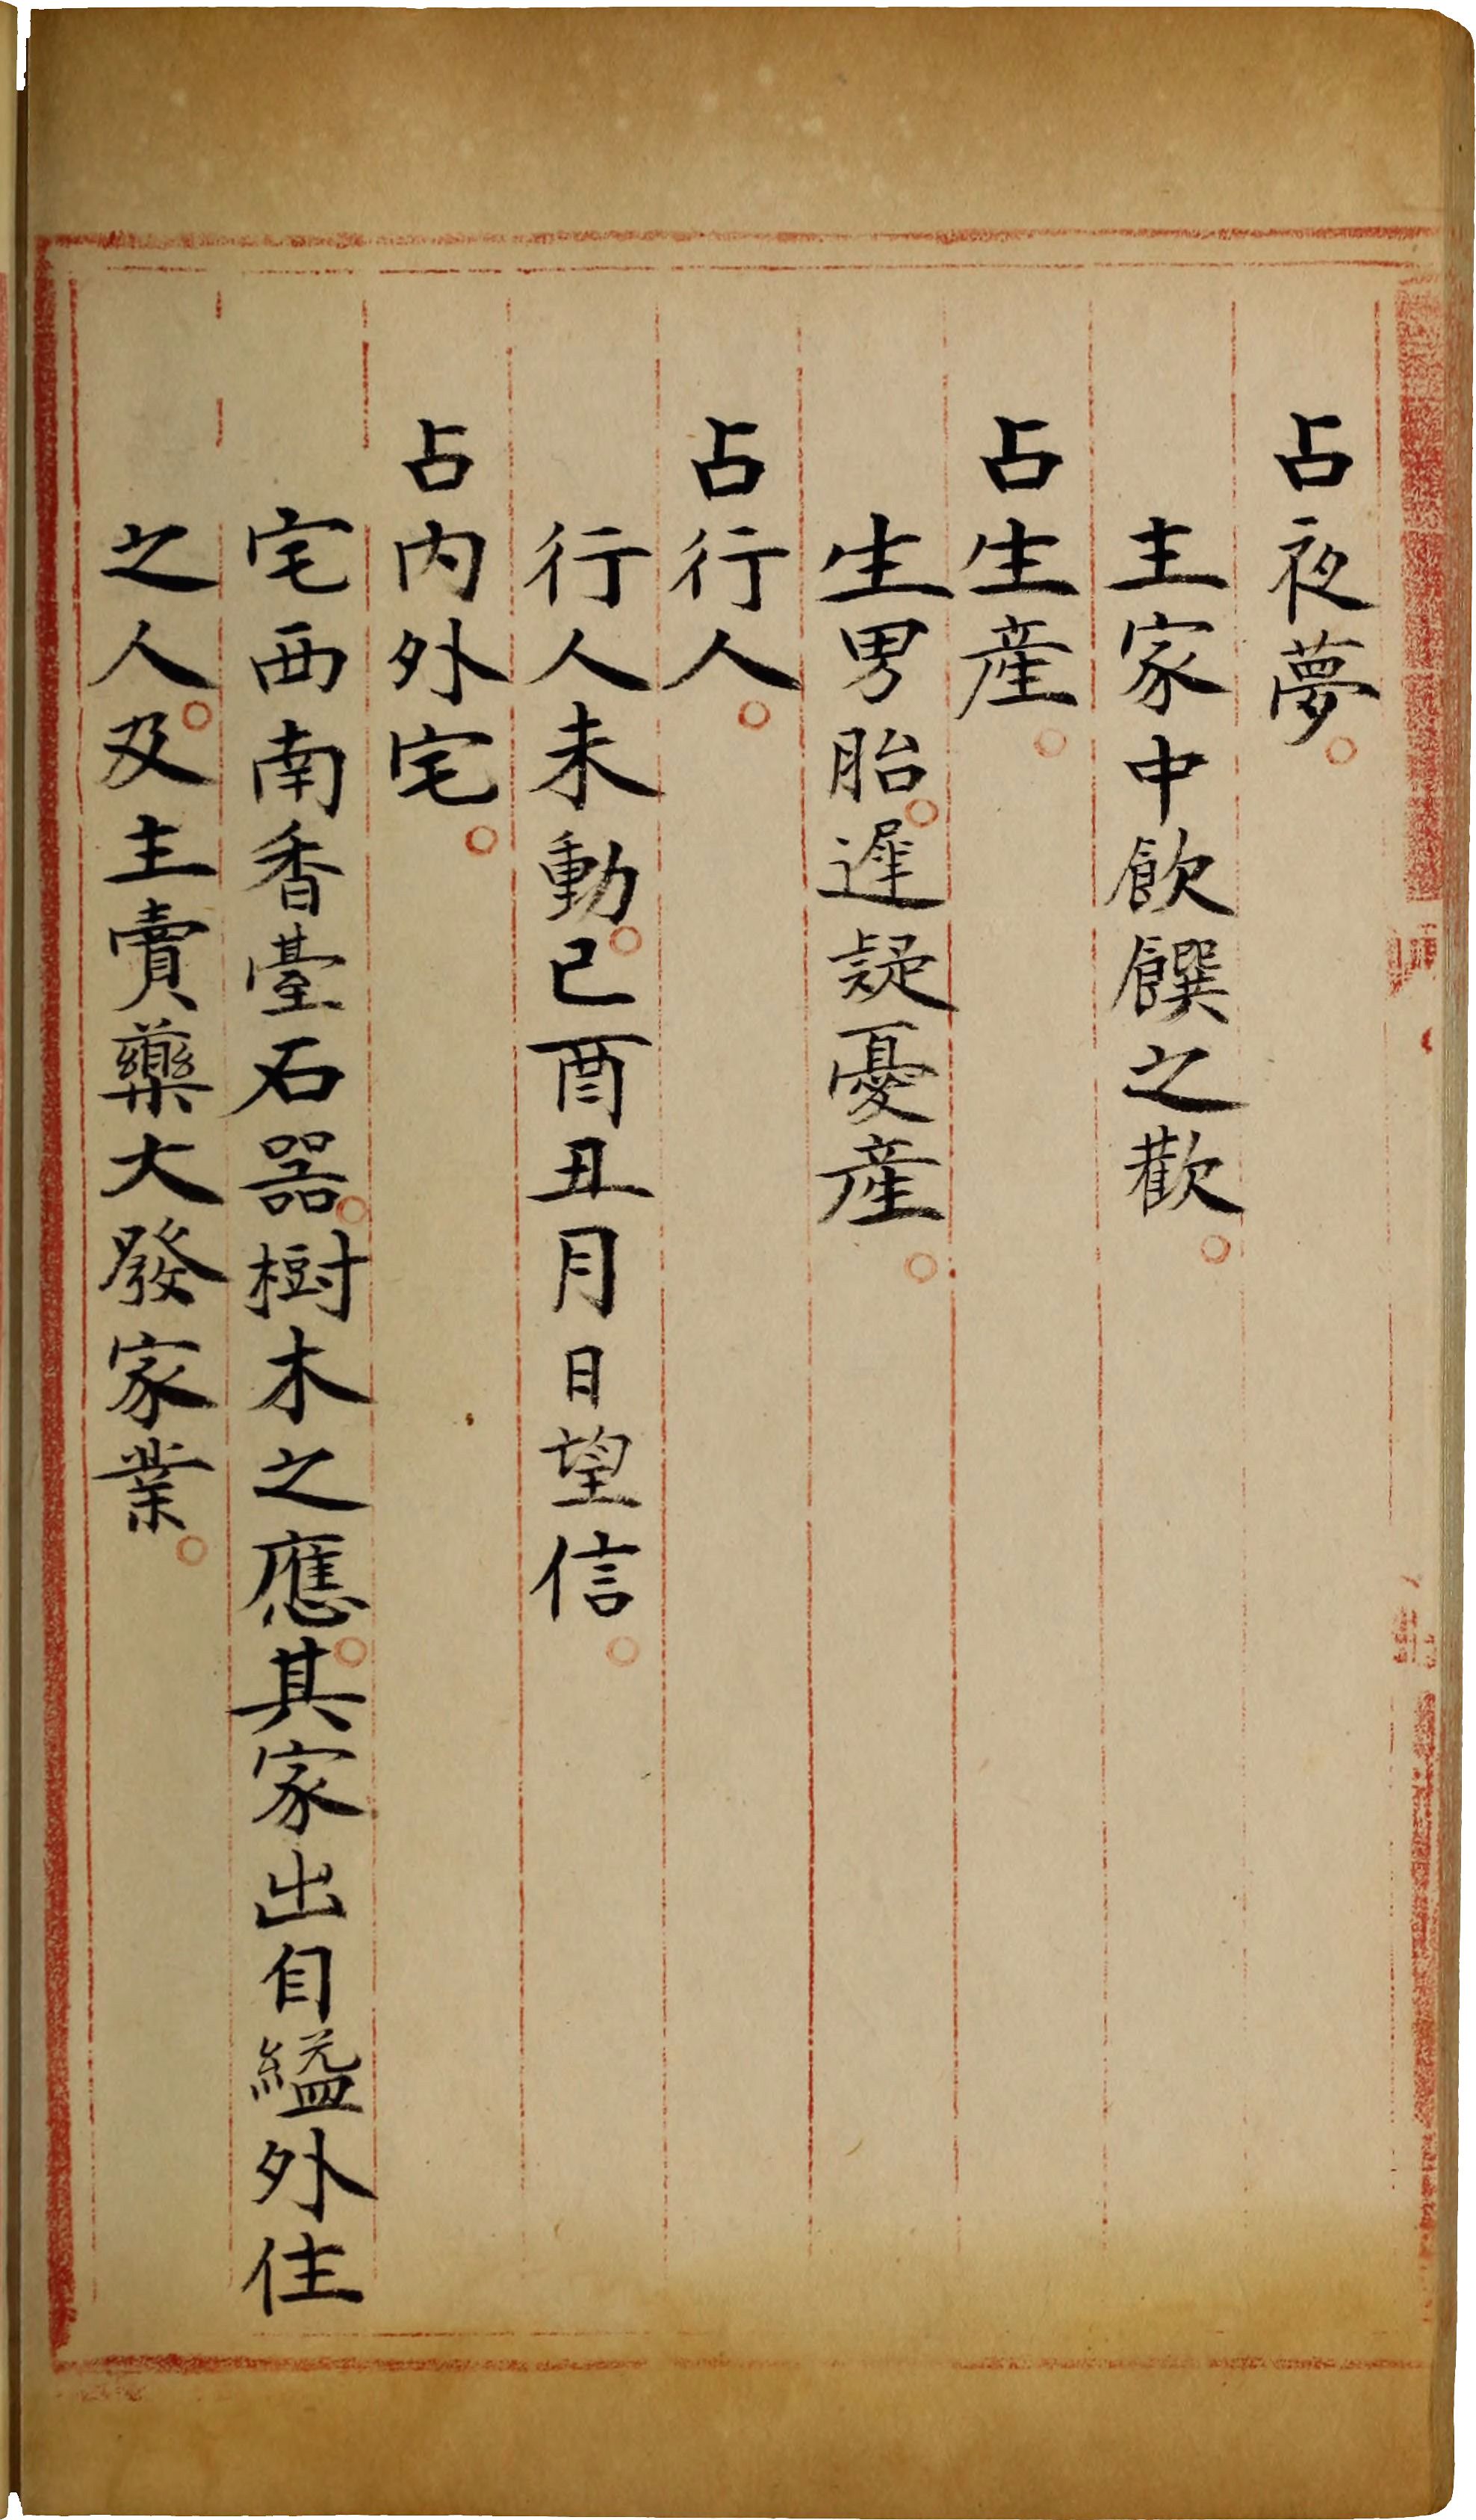 占夜夢。
主家中飲饌之歡。
占生產。
生男胎。遲疑憂產。
占行人。
行人未動。巳酉丑月日望信。
占內外宅。
宅西南香臺石器。樹木之應。其家出自縊外住
之人。及主賣藥大發家業。